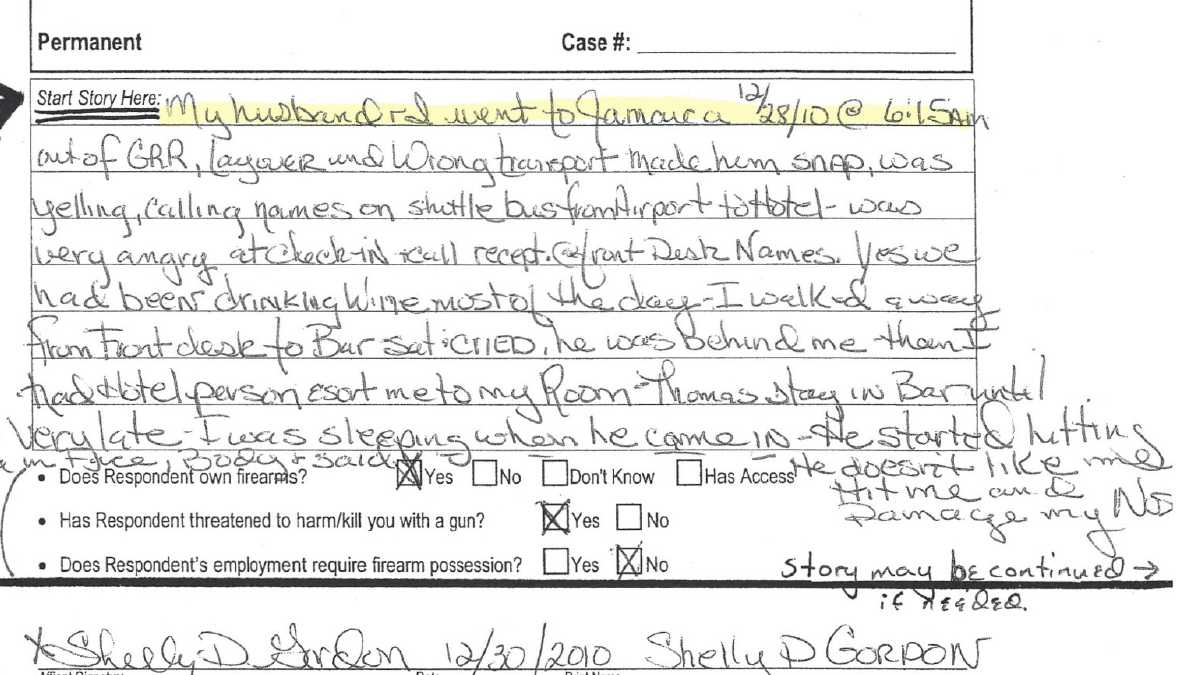 Permanent Case #:
Start Story Here: My husband + I went to Jamaica 12/28/10 @ 6:15am
out of GRR, Layover and Wrong transport made him SNAP, was
yelling, calling names on shuttle bus from Airport to Hotel - was
very angry at check-IN + call recept. @ front Desk Names. Yes we
had been drinking Wine most of the day - I walked away
from Front desk to Bar sat + CRIED, he was Behind me
had Hotel person esort me to my Room - Thomas stay in Bar until
very late - I was sleeping when he came IN - He started hitting
in Face, Body + said
He doesn't like me
Hit me and
Damage my
• Does Respondent own firearms? Yes No Don't Know Has Access
• Has Respondent threatened to harm/kill you with a gun? Yes No
• Does Respondent's employment require firearm possession? Yes No
story may be continued →
if needed.
x Shelly D. Gordon 12/30/2010 Shelly D GORDON